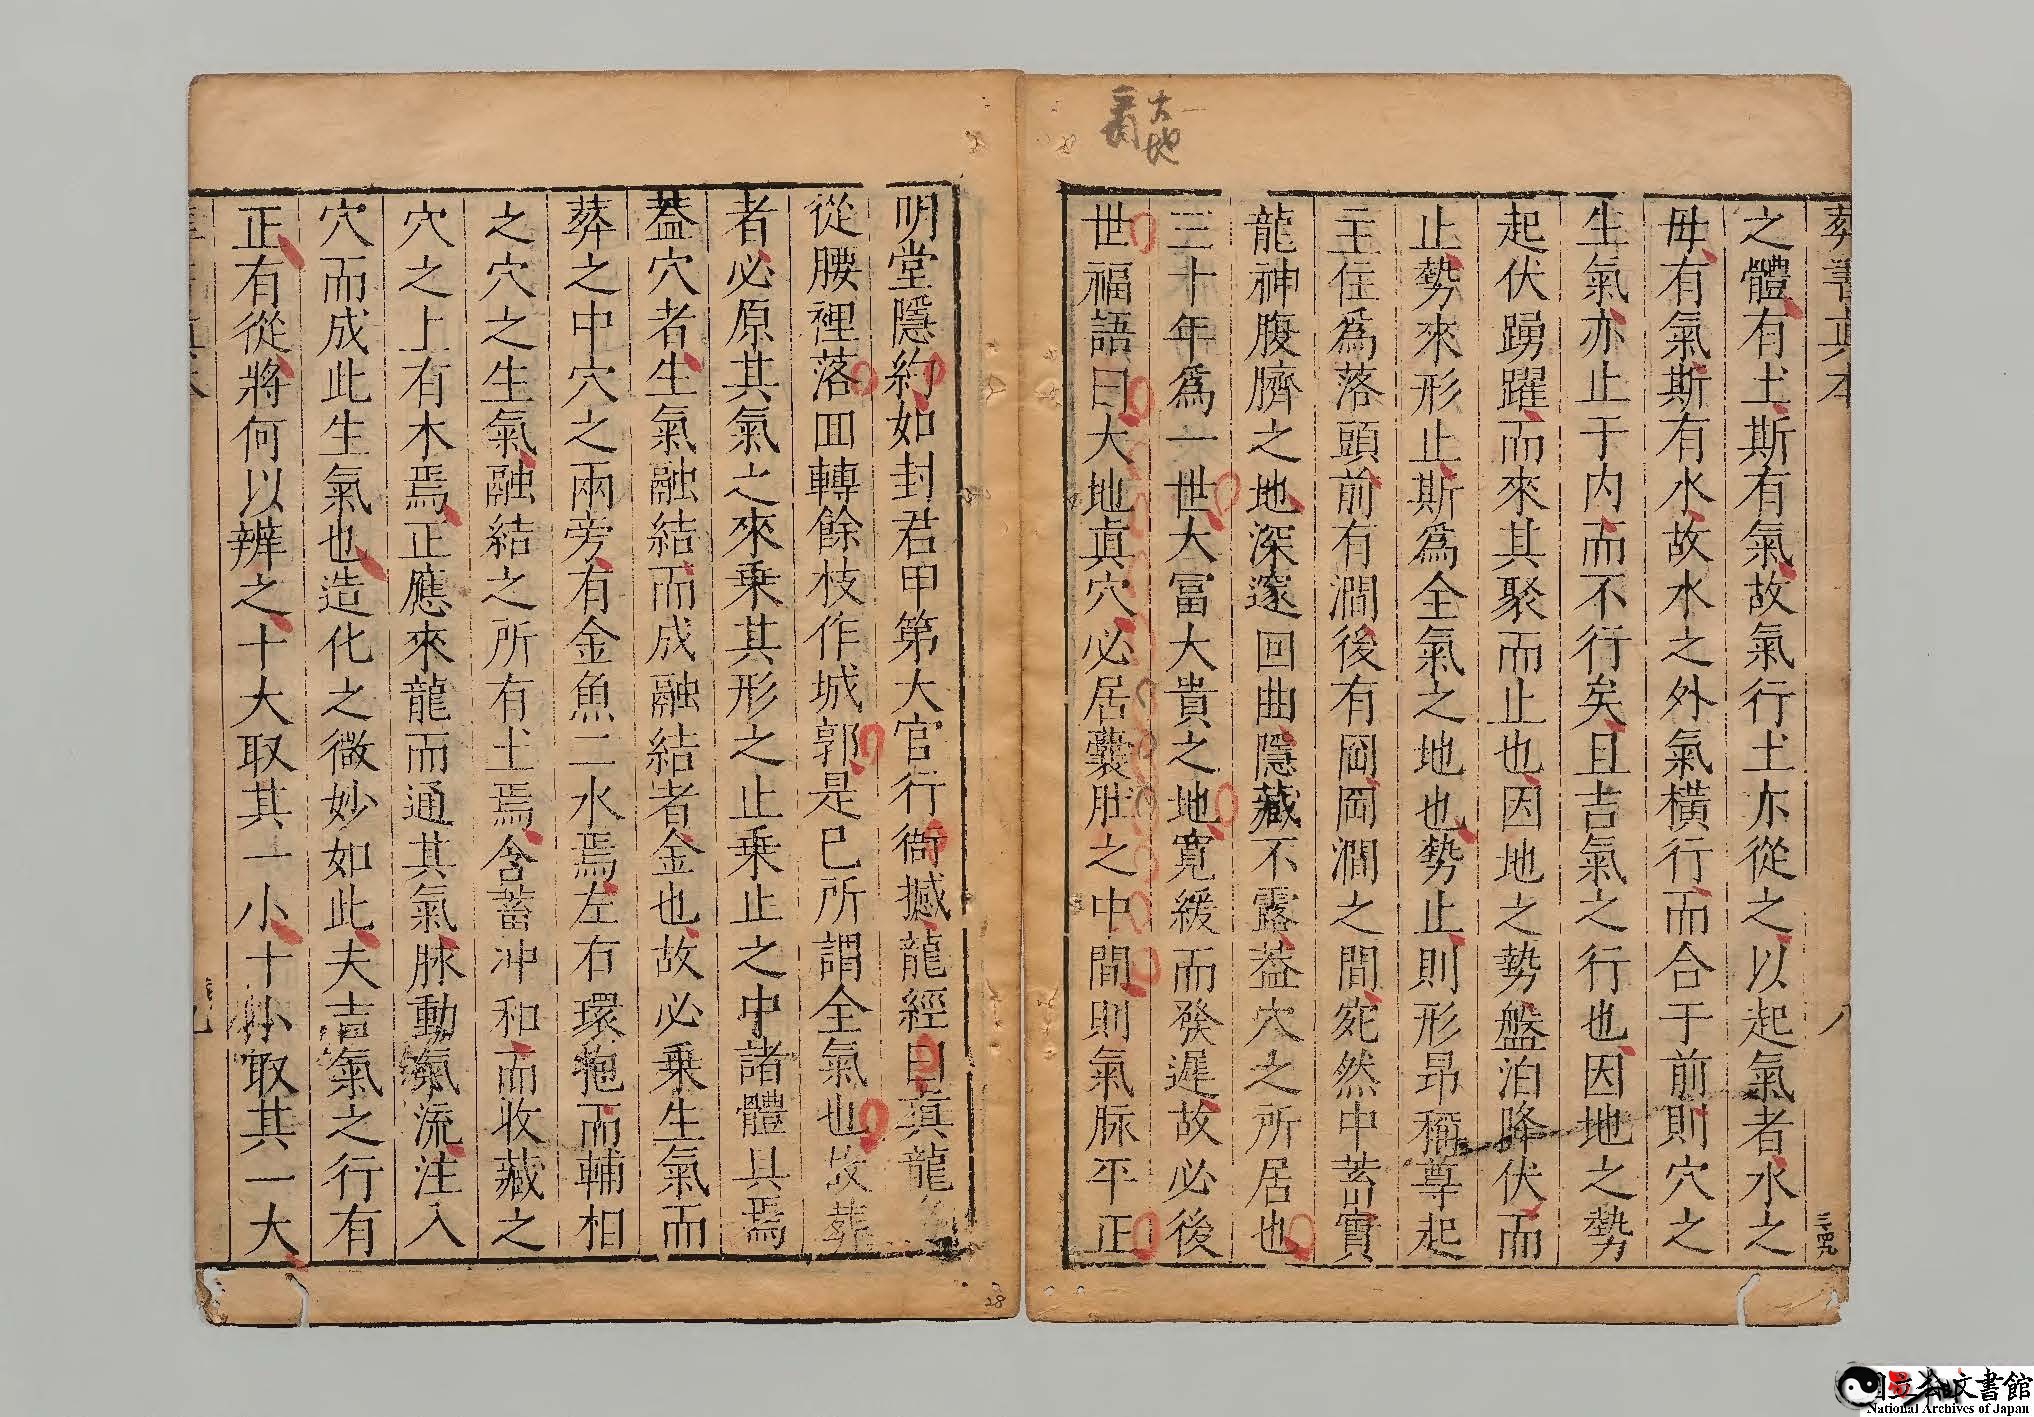 大地
葬書真本
八
之體有土斯有氣故氣行土亦從之以起氣者水之
毋有氣斯有水故水之外氣橫行而合于前則穴之
生氣亦止于内而不行矣且吉氣之行也因地之勢
起伏踴躍而來其聚而止也因地之勢盤泊降伏而
止勢來形止斯爲全氣之地也勢止則形昂稱尊起
主住爲落頭前有澗後有岡岡澗之間宛然中蓄寳
龍神腹臍之地深邃回曲隱藏不露葢穴之所居也
三十年爲一世大冨大貴之地寛緩而發遲故必後
世福語曰大地真穴必居囊肚之中間則氣脉平正
明堂隱約如封君甲第大官行衙撼龍經曰真龍
從腰裡落回轉餘枝作城郭是已所謂全氣也故葬
者必原其氣之來乗其形之止乗止之中諸體具焉
葢穴者生氣融結而成融結者金也故必乗生氣而
葬之中穴之兩旁有金魚二水焉左右環抱而輔相
之穴之生氣融結之所有土焉含蓄冲和而收藏之
穴之上有木焉正應來龍而通其氣脉動氣流注入
穴而成此生氣也造化之微妙如此夫吉氣之行有
正有從將何以辨之十大取其一小十小取其一大
28
国立公文書館
National Archives of Japan